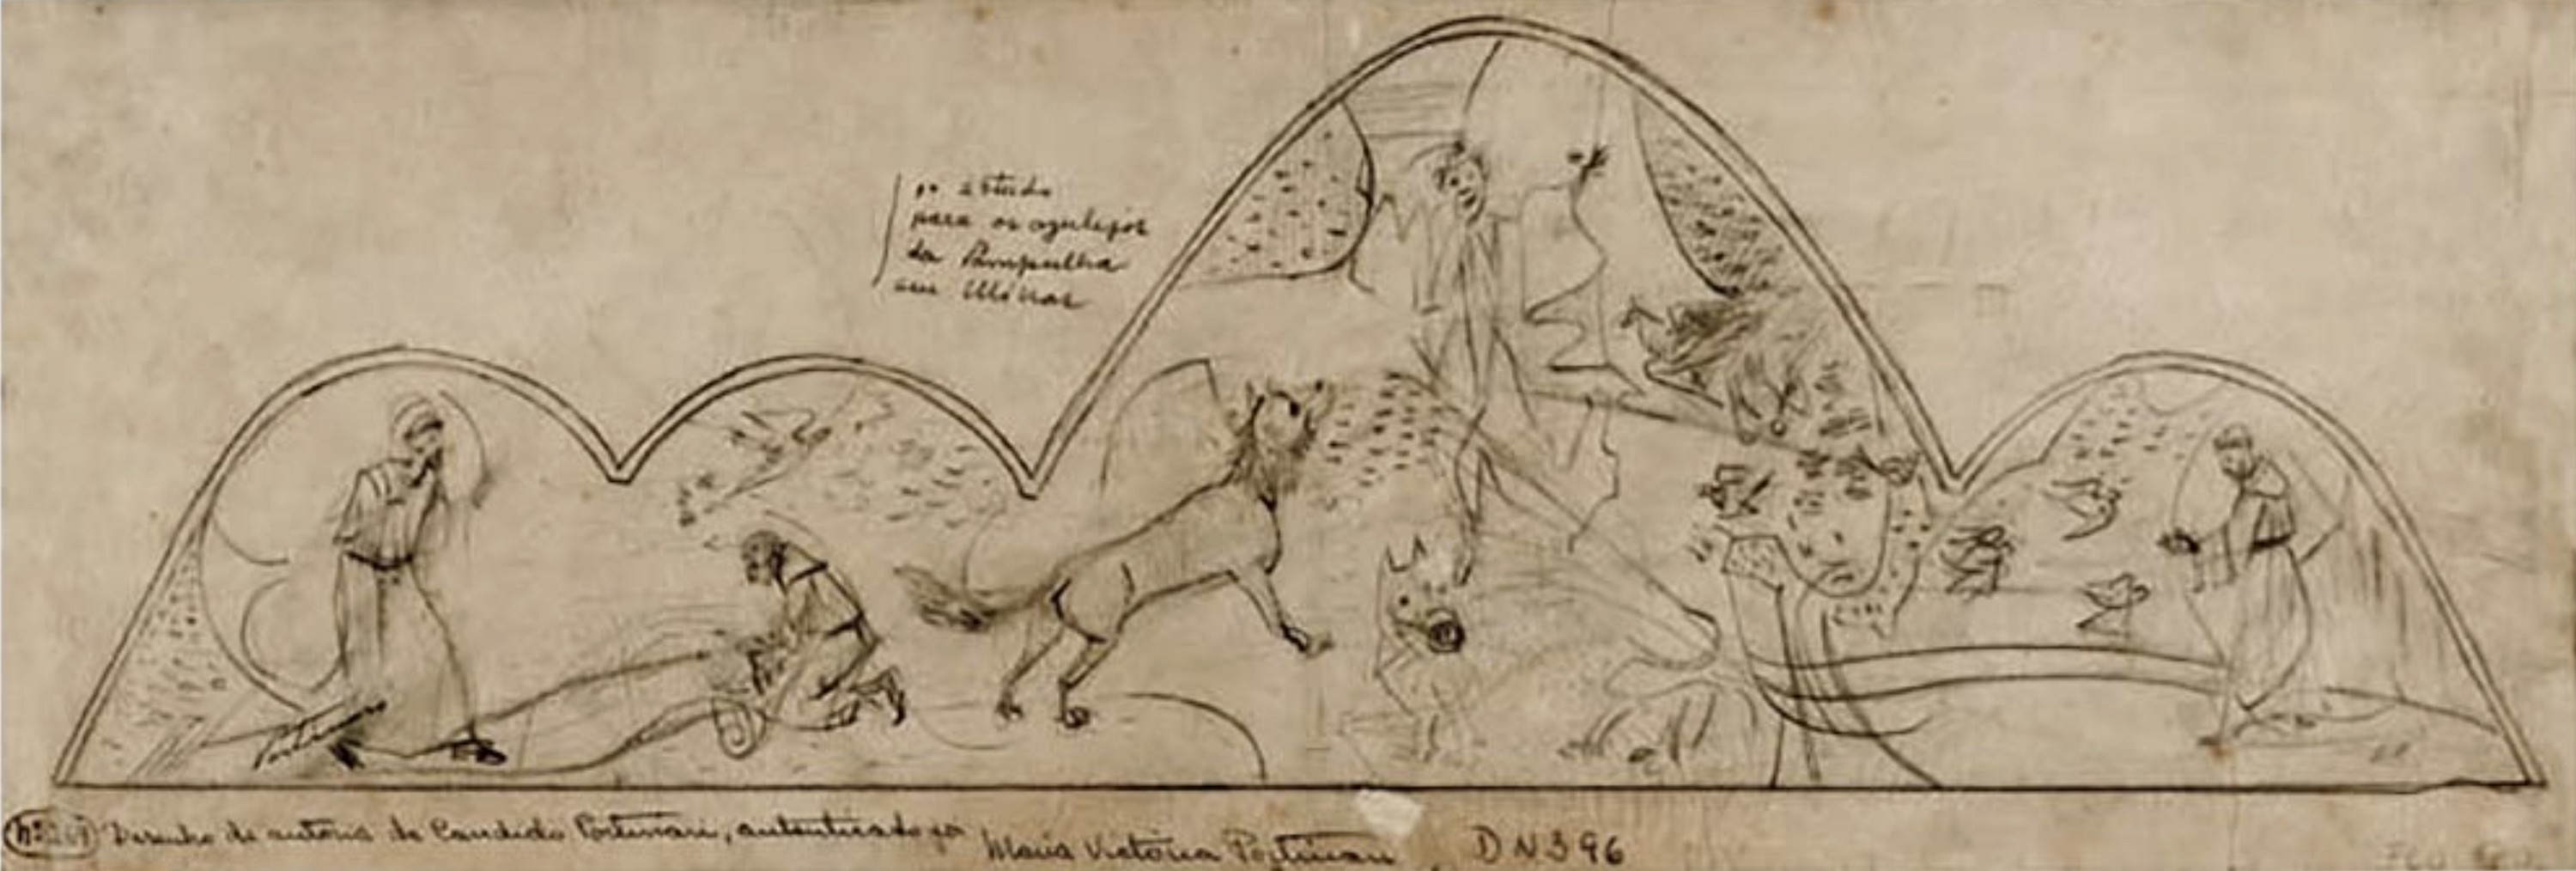 1º estudo
para os azulejos
da Pampulha
em Minas
Portinari
Desenho de autoria de Candido Portinari, autenticado por Maria Victoria Portinari, DN396